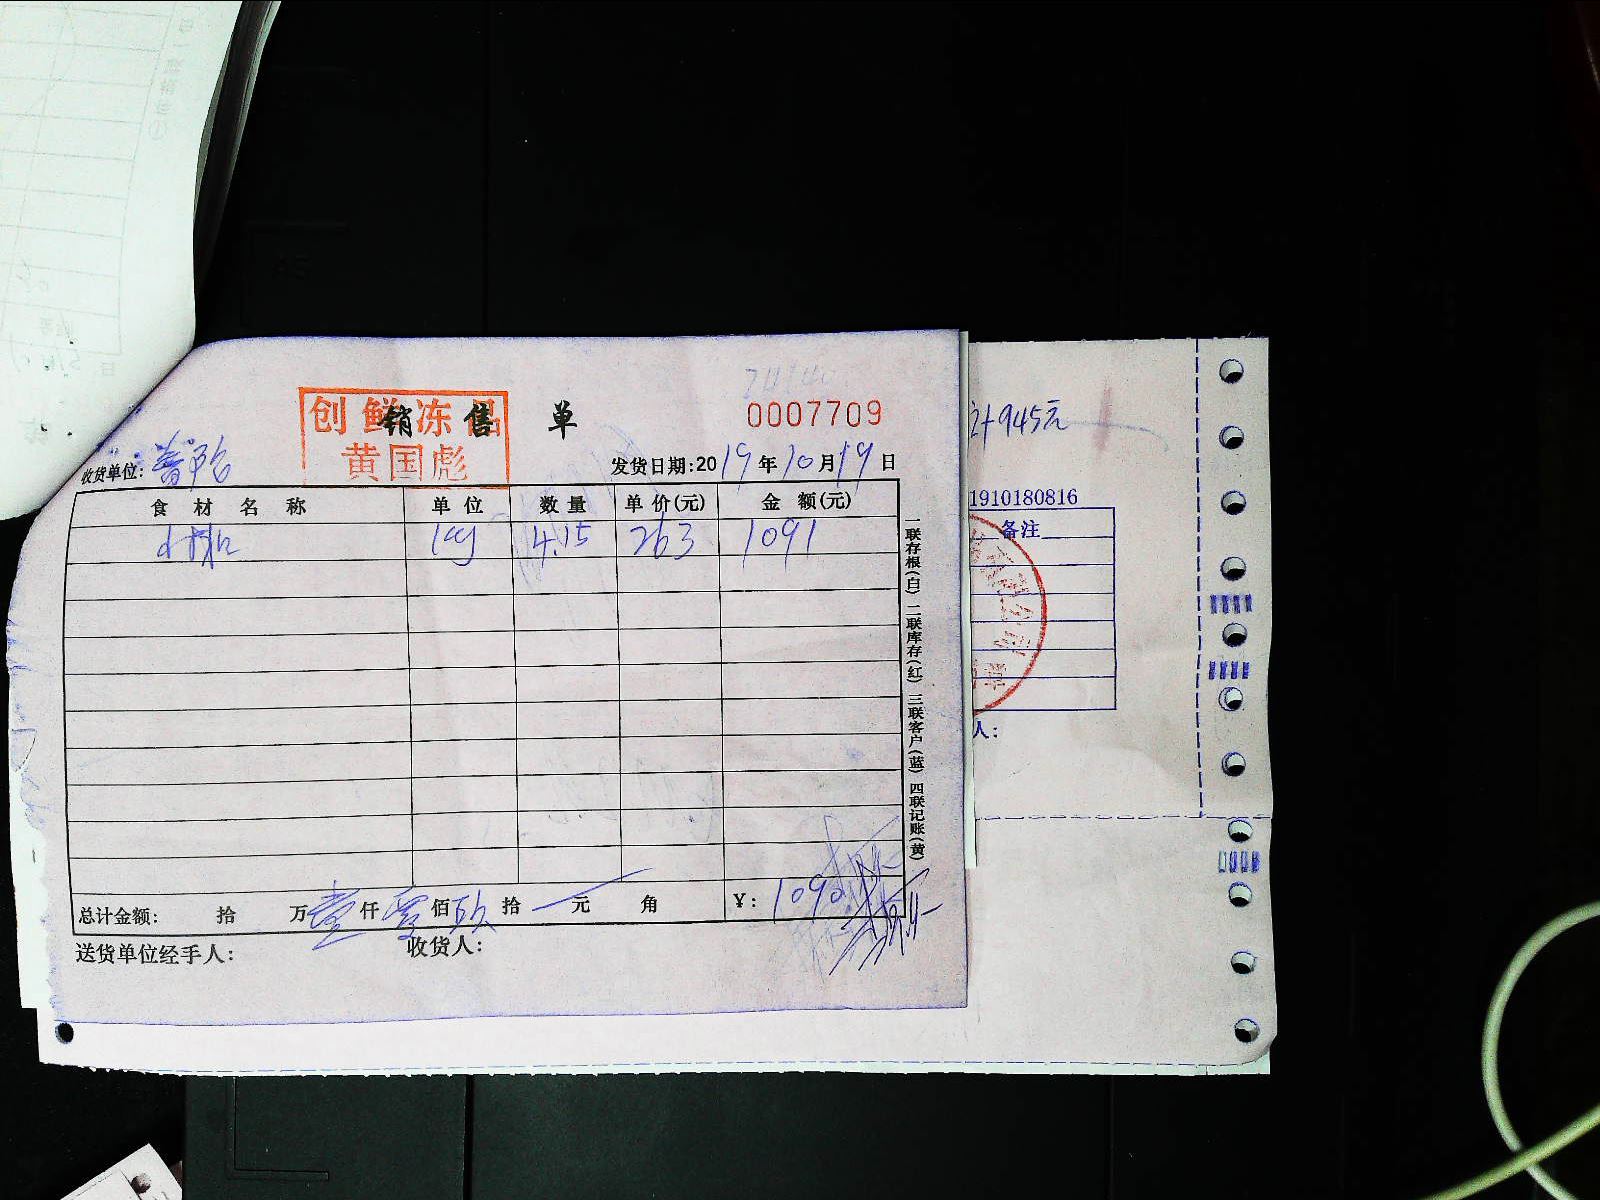 创鲜冻品
黄国彪
销售单
0007709
计945元
收货单位:
发货日期:2019年10月19日
1910180816
食材名称 单位 数量 单价(元) 金额(元)
小排 kg 4.15 263 1091
备注
一联存根(白) 二联库存(红) 三联客户(蓝) 四联记账(黄)
人:
总计金额: 拾 万壹仟零佰玖拾 元 角 ¥: 1090
送货单位经手人: 收货人: